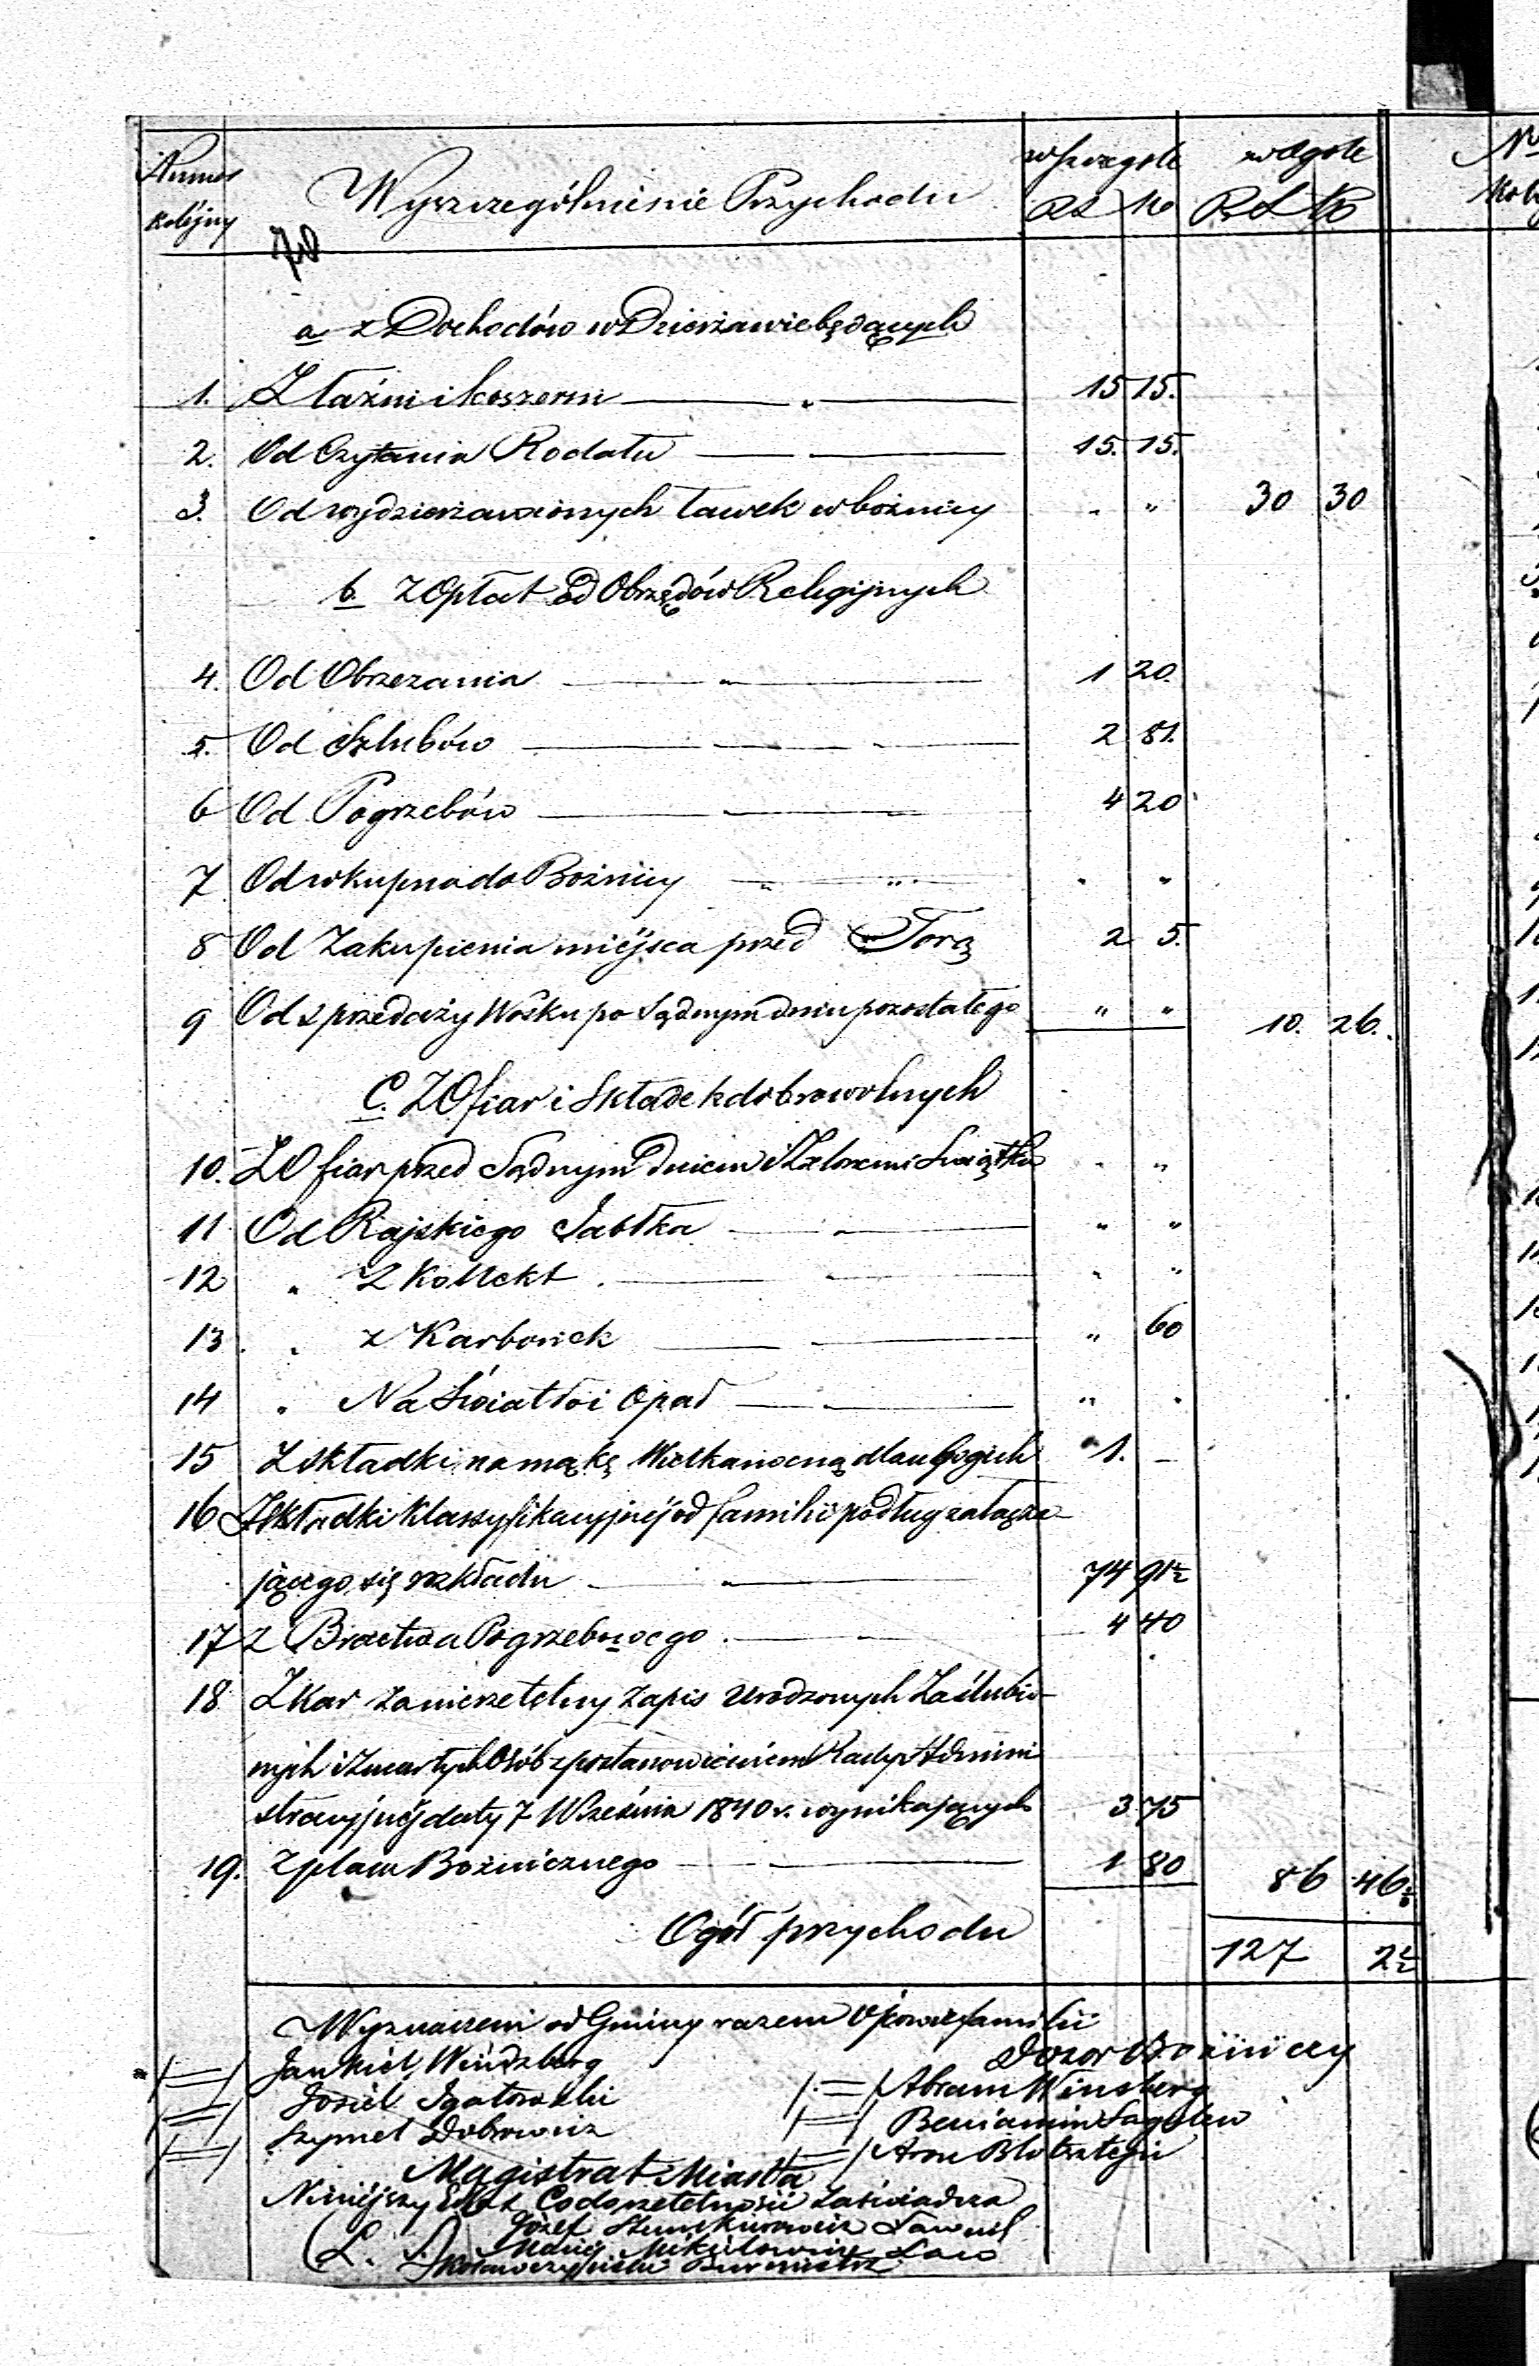 Numer kolejny Wyszczególnienie Przychodu w szczególe w ogóle
RS Ko RS Ko
a z Dochodów w Dzierżawie będących
1. Z łaźni i koszerni " 15 15.
2. Od Czytania Rodału 15. 15.
3. Od wydzierżawionych ławek w bożnicy " " 30 30
b Z Opłat od Obrzędów Religijnych
4. Od Obrzezania " 1 20.
5. Od Szlubów 2 81.
6 Od Pogrzebów 4 20
7 Od wkupna do Bożnicy " " " "
8 Od Zakupienia miéjsca przed Torą 2 5.
9 Od sprzedaży Wosku po Sądnym dniu pozostałego " " 10. 26.
C. Z Ofiar i Składek dobrowolnych
10. Z Ofiar przed Sądnym Dniem i Zielonemi Swiątki " "
11 Od Rajskiego Jabłka " "
12 " Z Kollekt " "
13 " z Karbonek " 60
14 " Na Światło i Opał " "
15 Z Składki na mąkę Wielkanocną dla ubogich 1. -
16 Z Składki klassyfikacyjnéj od familii podług załącza-
jącego się rozkładu 74 91½
17 Z Bractwa Pogrzebowego 4 40
18 Z Kar za nierzetelny zapis Urodzonych Zaślubio-
nych i Zmarłych Osób z postanowieniem Rady Admini
stracyjnéj daty 7 Września 1840 r. wynikających 3 75
19. Z placu Bożnicznego 1 80 86 46½
Ogół przychodu 127 2½
Wyznaczeni od Gminy razem familii
Dozor Bożniczy
/=/ Jankiel Windzberg
/=/ Abram Winsberg
/=/ Josiel
/=/ Beniamin
/=/ Szymel Dobrowicz
/=/ Aron
Magistrat Miasta
Niniejszy Etat Co do rzetelności zaświadcza
Józef Ławnik
(L. S.) Mikulowicz Ław
Burmistrz